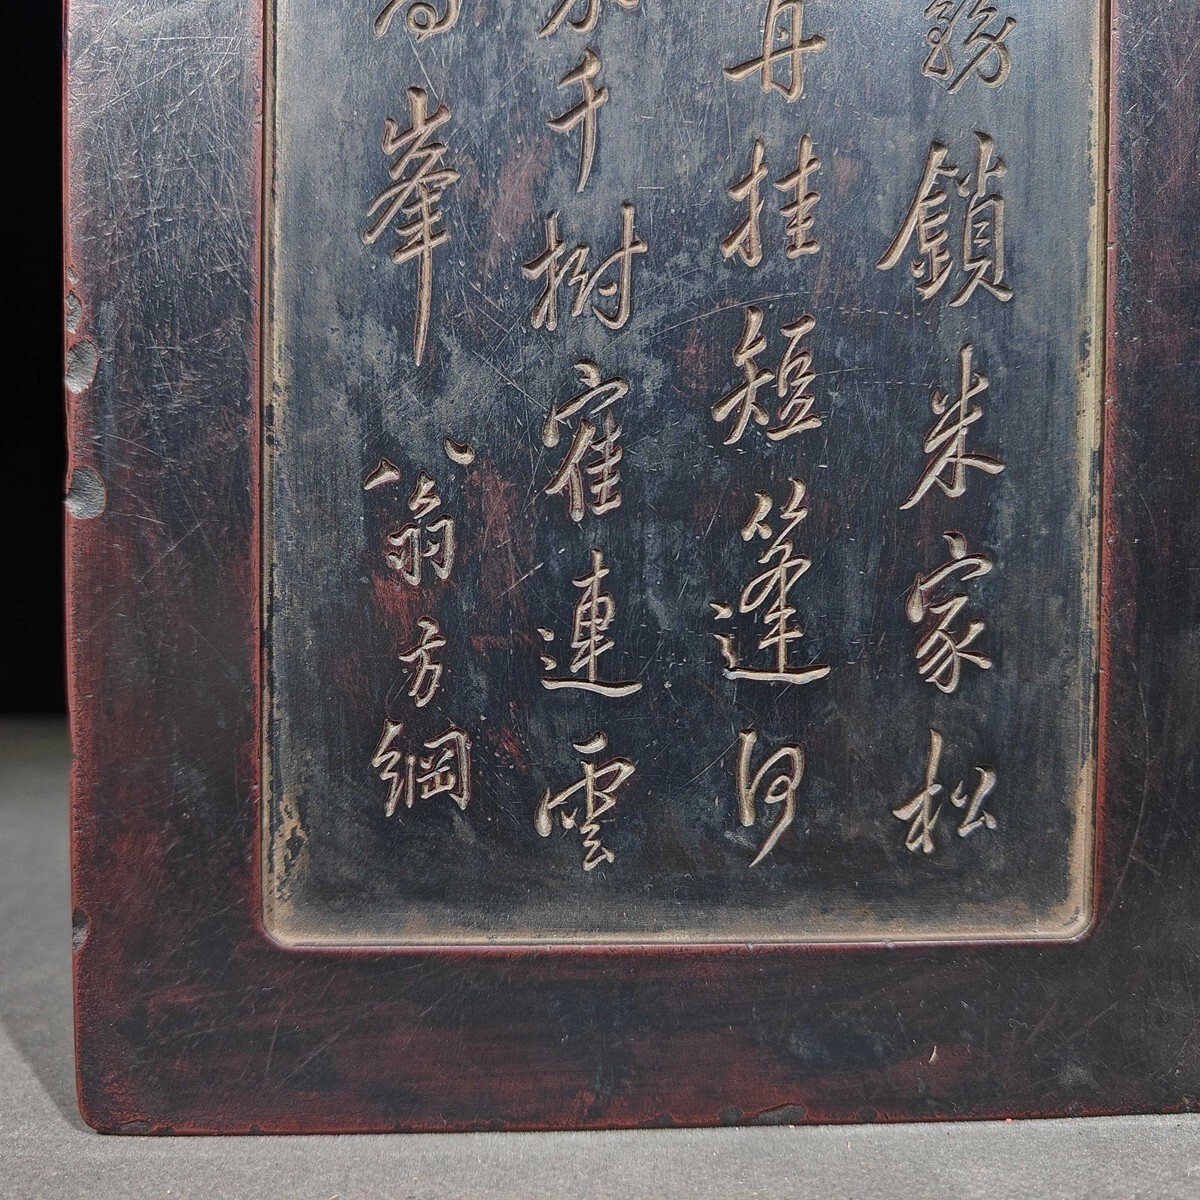 鎖米家松
舟挂短篷河
千樹隺連雲
峯
翁方綱